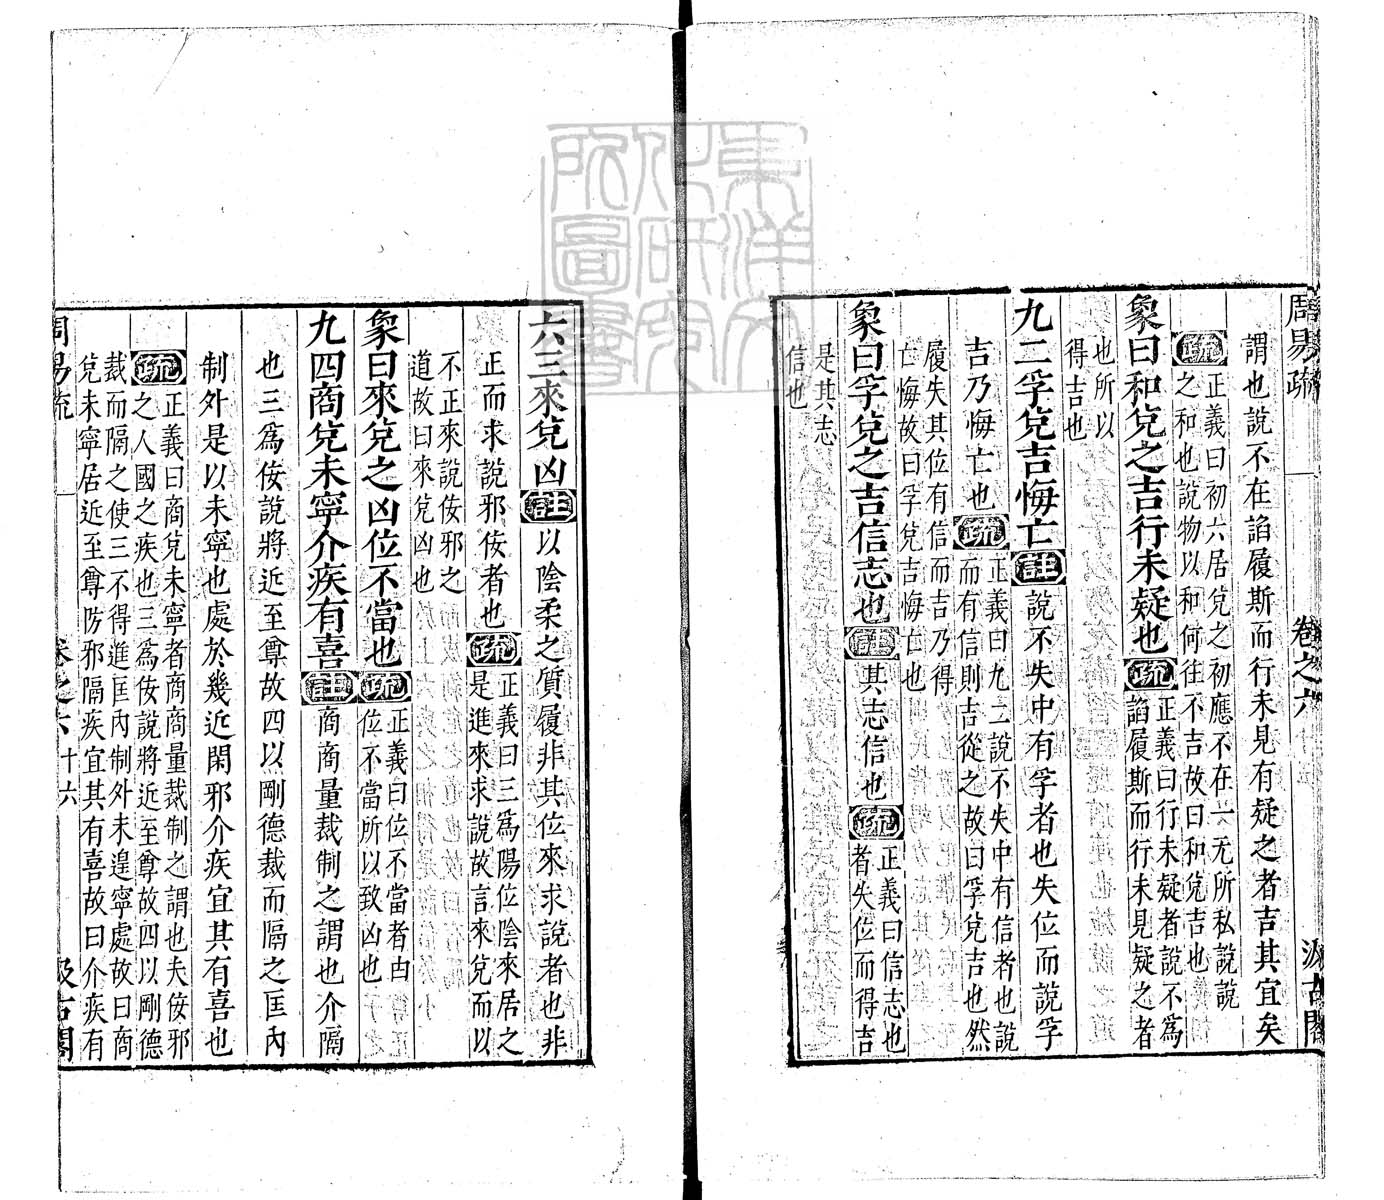 周易疏 卷之六 汲古閣
謂也說不在諂履斯而行未見有疑之者吉其宜矣
疏 正義曰初六居兌之初應不在一无所私說說
之和也說物以和何往不吉故曰和兌吉也
象曰和兌之吉行未疑也 疏 正義曰行未疑者說不爲
諂履斯而行未見疑之者
也所以
得吉也
九二孚兌吉悔亡 註 說不失中有孚者也失位而說孚
吉乃悔亡也 疏 正義曰九二說不失中有信者也說
而有信則吉從之故曰孚兌吉也然
履失其位有信而吉乃得
亡悔故曰孚兌吉悔亡也
象曰孚兌之吉信志也 註 其志信也 疏 正義曰信志也
者失位而得吉
是其志
信也
六三來兌凶 註 以陰柔之質履非其位來求說者也非
正而求說邪佞者也 疏 正義曰三爲陽位陰來居之
是進來求說故言來兌而以
不正來說佞邪之
道故曰來兌凶也
象曰來兌之凶位不當也 疏 正義曰位不當者由
位不當所以致凶也
九四商兌未寧介疾有喜 註 商商量裁制之謂也介隔
也三爲佞說將近至尊故四以剛德裁而隔之匡內
制外是以未寧也處於幾近閑邪介疾宜其有喜也
疏 正義曰商兌未寧者商商量裁制之謂也夫佞邪
之人國之疾也三爲佞說將近至尊故四以剛德
裁而隔之使三不得進匡內制外未遑寧處故曰商
兌未寧居近至尊防邪隔疾宜其有喜故曰介疾有
周易疏 卷之六 十六 汲古閣